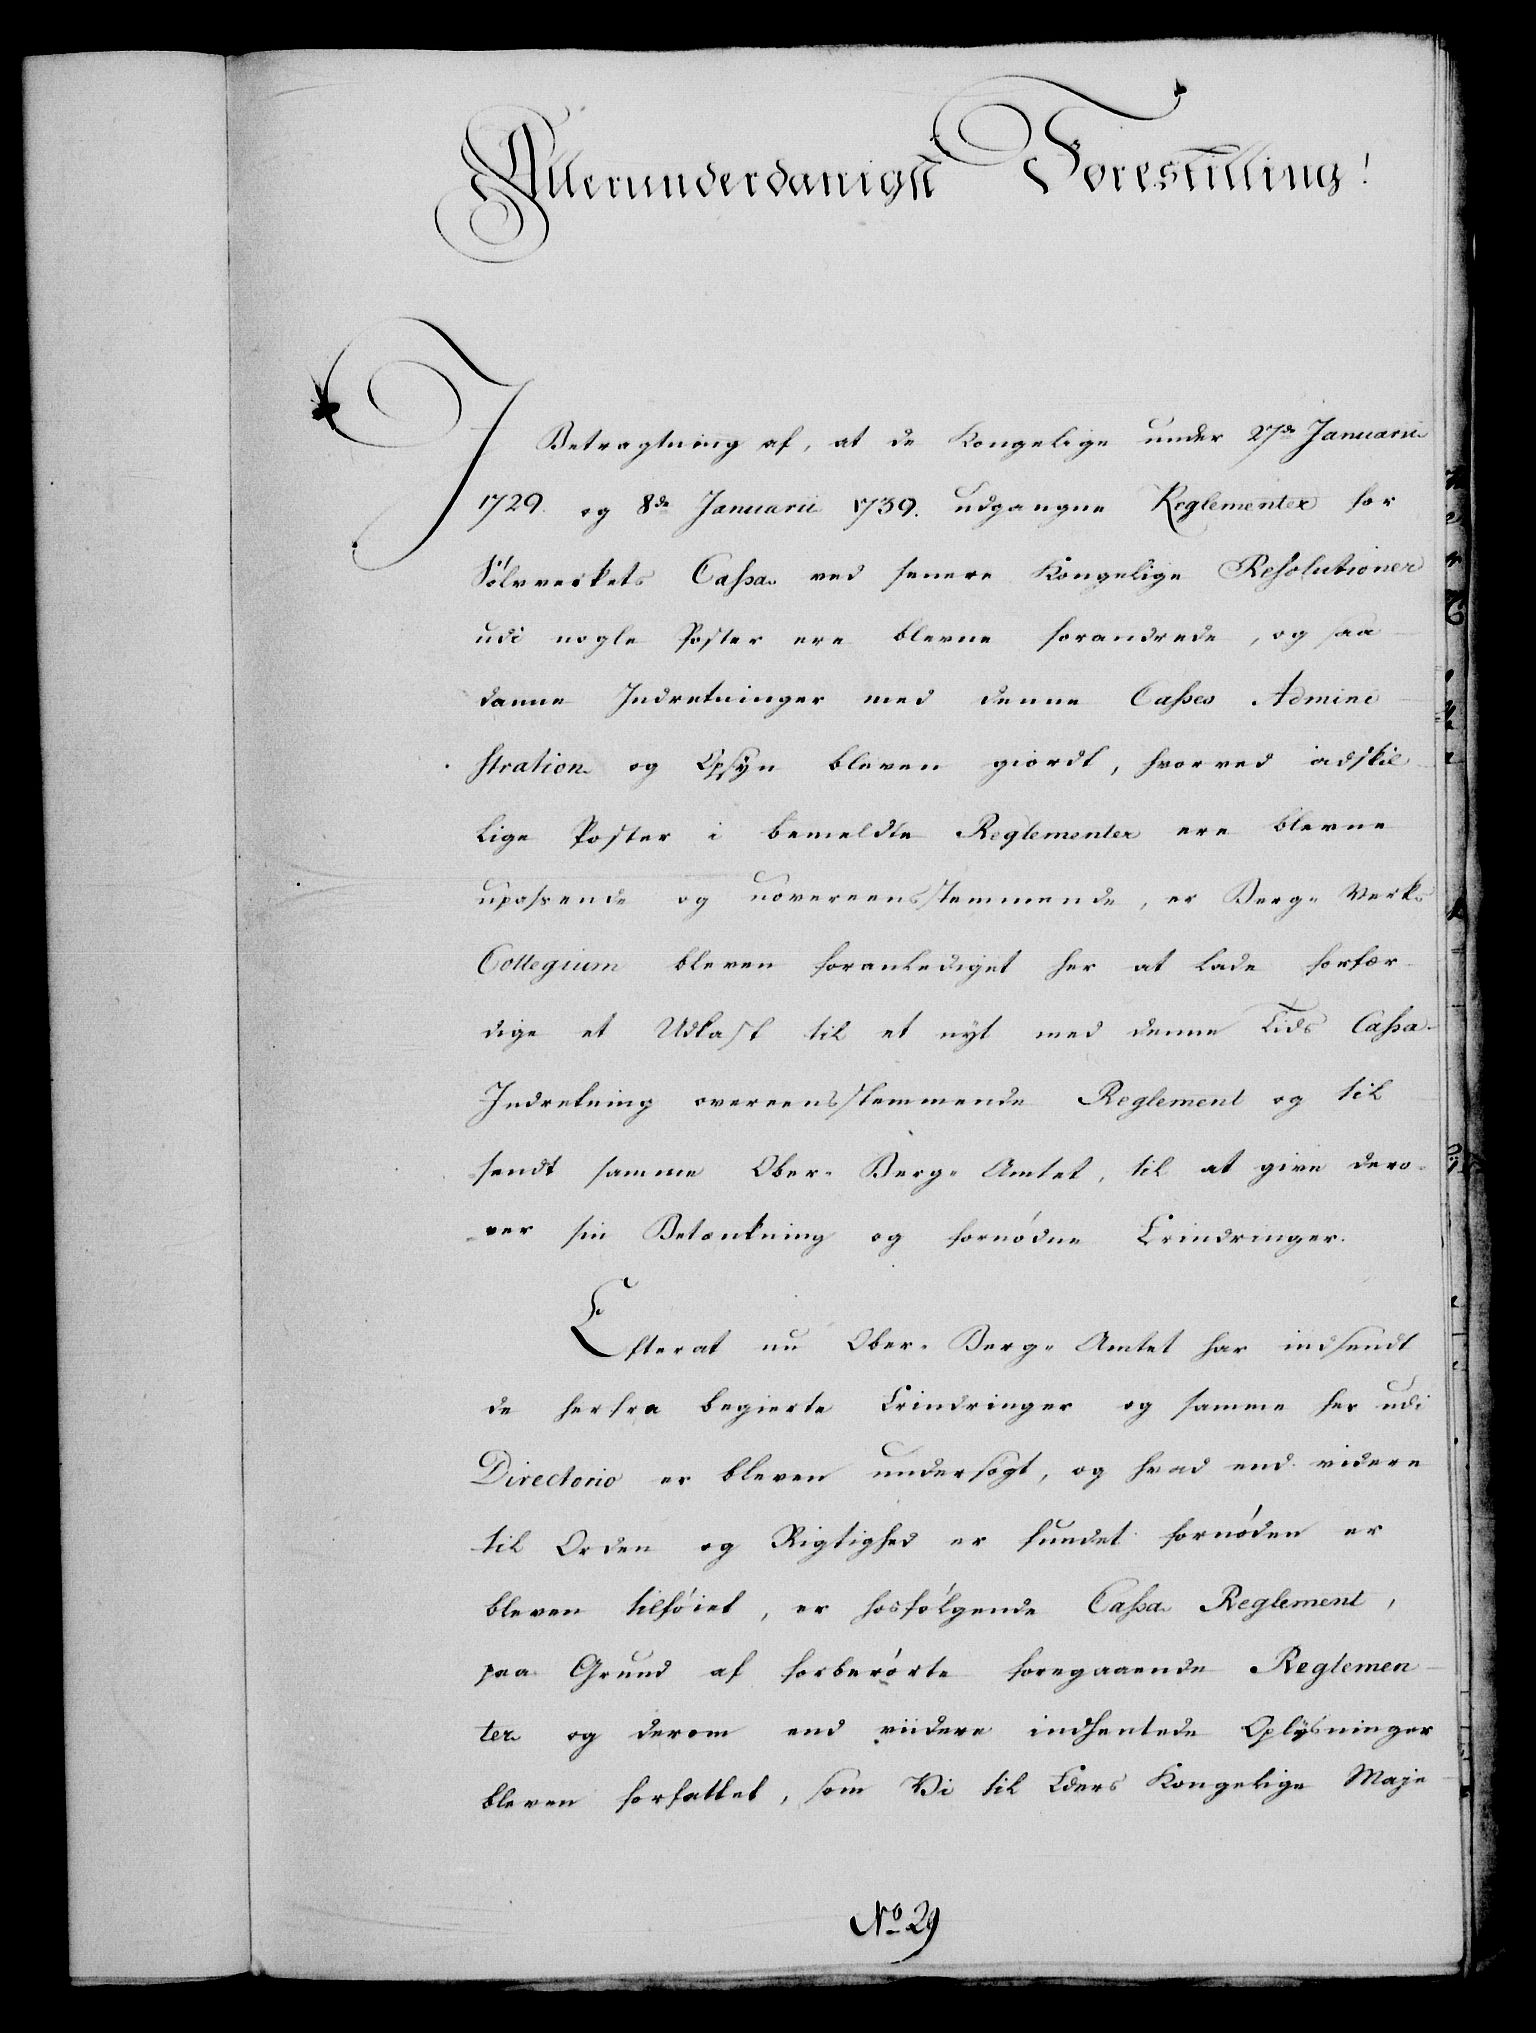 Allerunderdanigst Forestilling!
I Betragtning af, at de Kongelige under 27de Januarii
1729. og 8de Januarii 1739. udgangne Reglementer for
Sølvverkets Cassa ved senere Kongelige Resolutioner
udi nogle Poster ere blevne forandrede, og saa
danne Indretninger med denne Casses Admini
stration og Opsÿn bleven giordt, hvorved adskil
lige Poster i bemeldte Reglementer ere blevne
upassende og uovereensstemmende, er Berg- Verks
Collegium bleven foranlediget her at lade forfær
dige et Udkast til et nyt med denne Tids Cassa
Indretning overeensstemmende Reglement og til
sendt samme Ober- Berg- Amtet, til at give dero-
ver sin Betænkning og fornødne Erindringer.
Efterat nu Ober- Berg- Amtet har indsendt
de herfra begierte Erindringer og samme her udi
Directorio er bleven undersøgt, og hvad end videre
til Orden og Rigtighed er fundet fornøden er
bleven tilføiet, er hosfølgende Cassa Reglement,
paa Grund af forberørte foregaaende Reglemen
ter og derom end viidere indhentede Oplÿsninger
bleven forfattet, som Vi til Eders Kongelige Maje
No 29